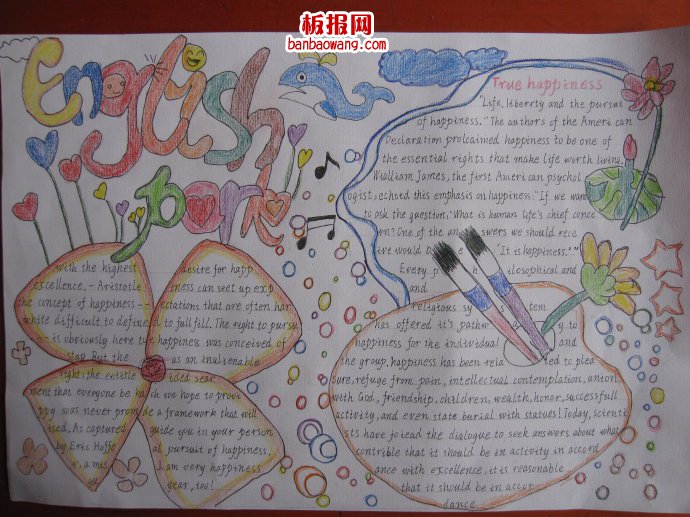 板报网
banbaowang.com
English
park
True happiness
"Life, liberty and the pursui
of happiness." The authors of the Ameri can
Declaration prolcaimed happiness to be one of
the essential rights that make life worth living.
William James, the first American psychol
ogist, echoed this emphasis on happiness. "If we were
to ask the question, "What is human life's chief conce
rn? One of the answers we should rece
ive would be "It is happiness.""
Every philosophical and
and
religious sy tem
has offered it's pathw y to
happiness for the individual and
the group. happiness has been rela ted to plea
sure, refuge from pain, intellectual contemplation, union
with God, friendship, children, wealth, honor, successfull
activity, and even state burial with statues! Today, scienti
sts have joiead the dialogue to seek answers about what
contrible that it should be in activity in accord
ance with excellence, it is reasonable
that it should be in accor
dance
with the highest
excellence. - Aristotle
the concept of happiness --
while difficult to define
- is obviously here to
stay. But the
right: the entitle
ment that everyone be ha
ppy was never prom
ised. As captured
by Eric Hoffe
r, a mis
gu
desire for happ
iness can seet up exp
ectations that are often har
d to fullfill. The right to pursu
e happiness was conceived of
as an inalienable
ided sear
ch we hope to provi
de a framework that will
guide you in your person
al pursuit of happiness.
I am very happiness
year, too!